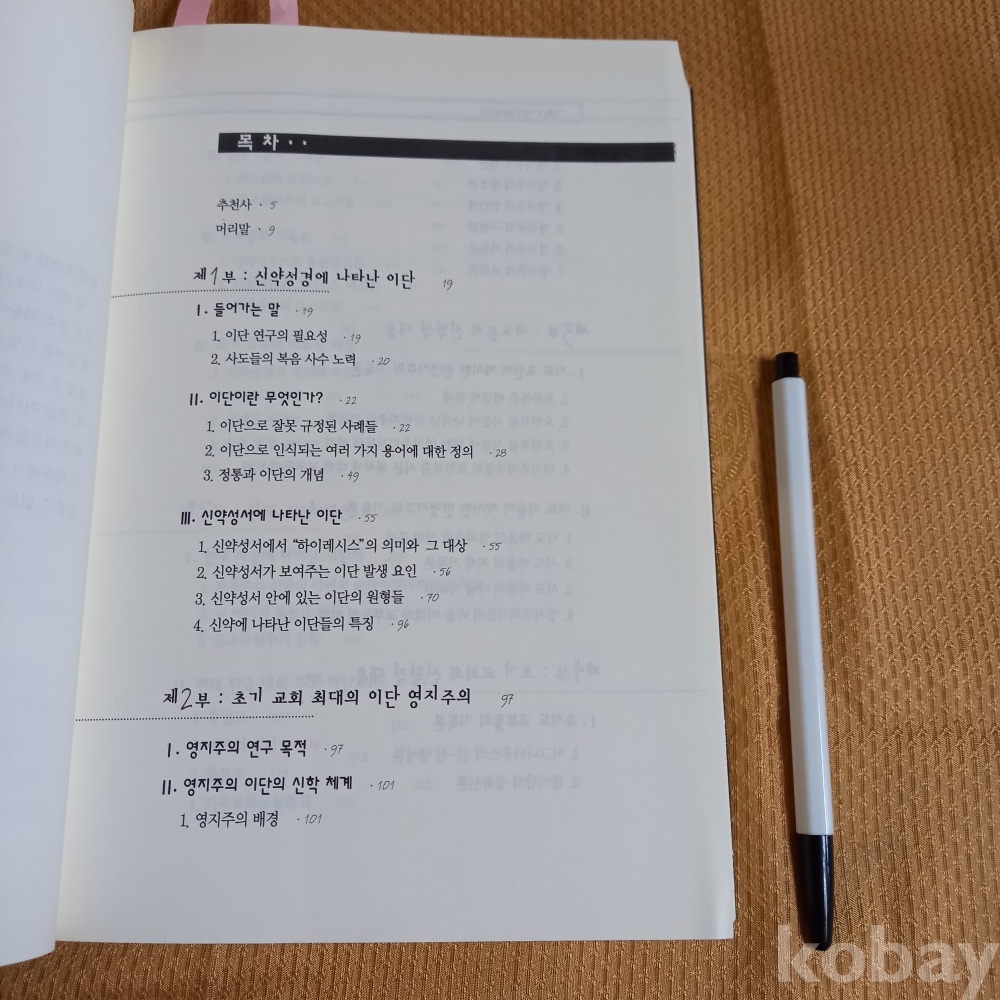 목차··
추천사 · 5
머리말 · 9
제1부 : 신약성경에 나타난 이단 19
I. 들어가는 말 · 19
1. 이단 연구의 필요성 · 19
2. 사도들의 복음 사수 노력 · 20
II. 이단이란 무엇인가? · 22
1. 이단으로 잘못 규정된 사례들 · 22
2. 이단으로 인식되는 여러 가지 용어에 대한 정의 · 28
3. 정통과 이단의 개념 · 49
III. 신약성서에 나타난 이단 · 55
1. 신약성서에서 “하이레시스”의 의미와 그 대상 · 55
2. 신약성서가 보여주는 이단 발생 요인 · 56
3. 신약성서 안에 있는 이단의 원형들 · 70
4. 신약에 나타난 이단들의 특징 · 96
제2부 : 초기 교회 최대의 이단 영지주의 97
I. 영지주의 연구 목적 · 97
II. 영지주의 이단의 신학 체계 · 101
1. 영지주의 배경 · 101
kobay